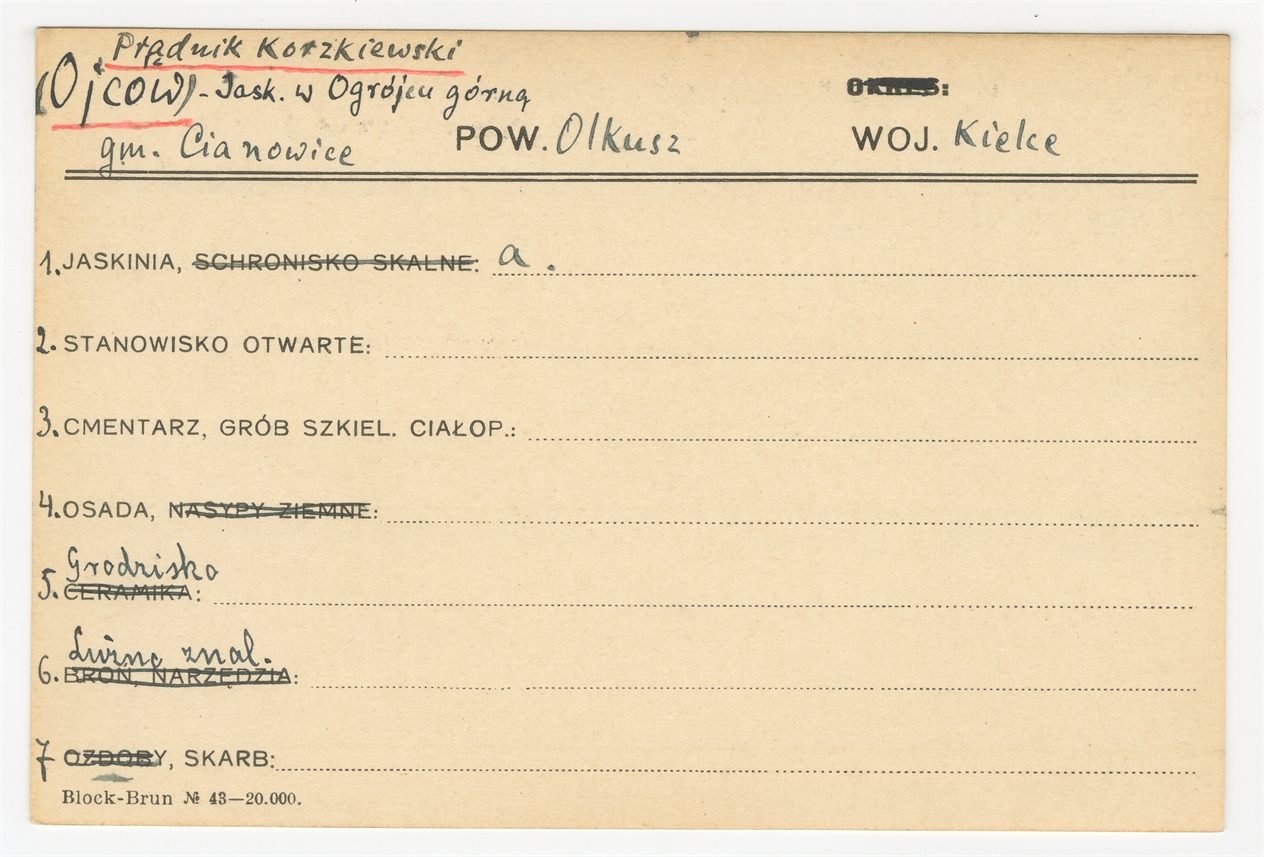 Prądnik Korzkiewski
(Ojców) - Jask. w Ogrójcu górna OKRES:
gm. Cianowice POW. Olkusz WOJ. Kielce
1. JASKINIA, SCHRONISKO SKALNE: a.
2. STANOWISKO OTWARTE:
3. CMENTARZ, GRÓB SZKIEL. CIAŁOP.:
4. OSADA, NASYPY ZIEMNE:
Grodzisko
5. CERAMIKA:
Luźne znal.
6. BROŃ, NARZĘDZIA:
7 OZDOBY, SKARB:
Block-Brun № 43—20.000.